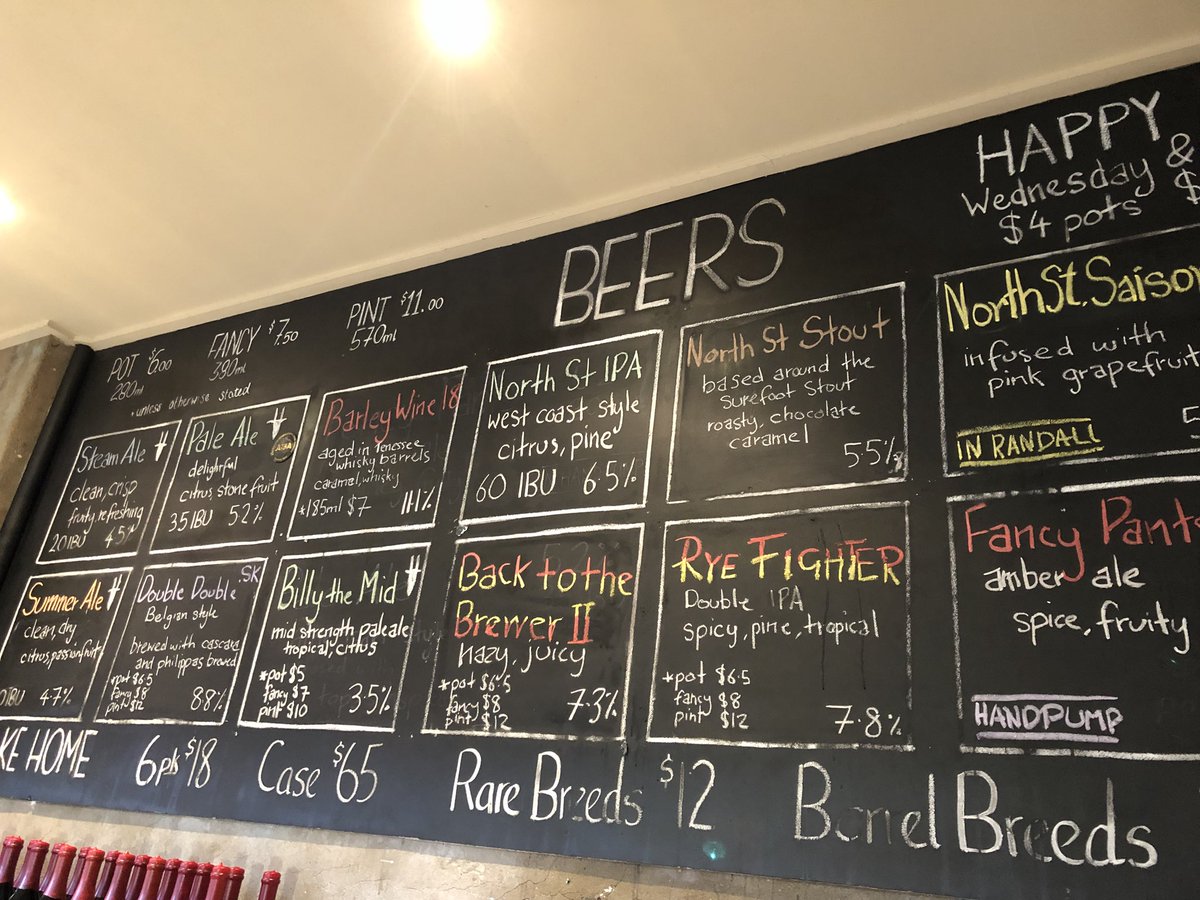 HAPPY
Wednesday &
$4 pots $
BEERS
POT $6.00
280ml
FANCY $7.50
390ml
PINT $11.00
570ml
*unless otherwise stated
Steam Ale
clean, crisp
fruity, refreshing
20 IBU 4.5%
Pale Ale
delightful
citrus stone fruit
35 IBU 5.2%
Barley Wine 18
aged in Tenessee
whisky barrels
caramel, whisky
*185ml $7 11.1%
North St IPA
west coast style
citrus, pine
60 IBU 6.5%
North St Stout
based around the
Surefoot Stout
roasty, chocolate
caramel
5.5%
North St. Saison
infused with
pink grapefruit
IN RANDALL
5
Summer Ale
clean, dry
citrus, passionfruit
IBU 4.7%
Double Double .SK
Belgian style
brewed with cascara
and philippas brewed
*pot $6.5
fancy $8
pint $12
8.8%
Billy the Mid
mid strength pale ale
tropical citrus
*pot $5
fancy $7
pint $10
3.5%
Back to the
Brewer II
hazy, juicy
*pot $6.5
fancy $8
pint $12
7.3%
RYE FIGHTER
Double IPA
spicy, pine, tropical
*pot $6.5
fancy $8
pint $12
7.8%
Fancy Pant
amber ale
spice, fruity
HANDPUMP
KE HOME
6pk $18
Case $65
Rare Breeds $12
Barrel Breeds